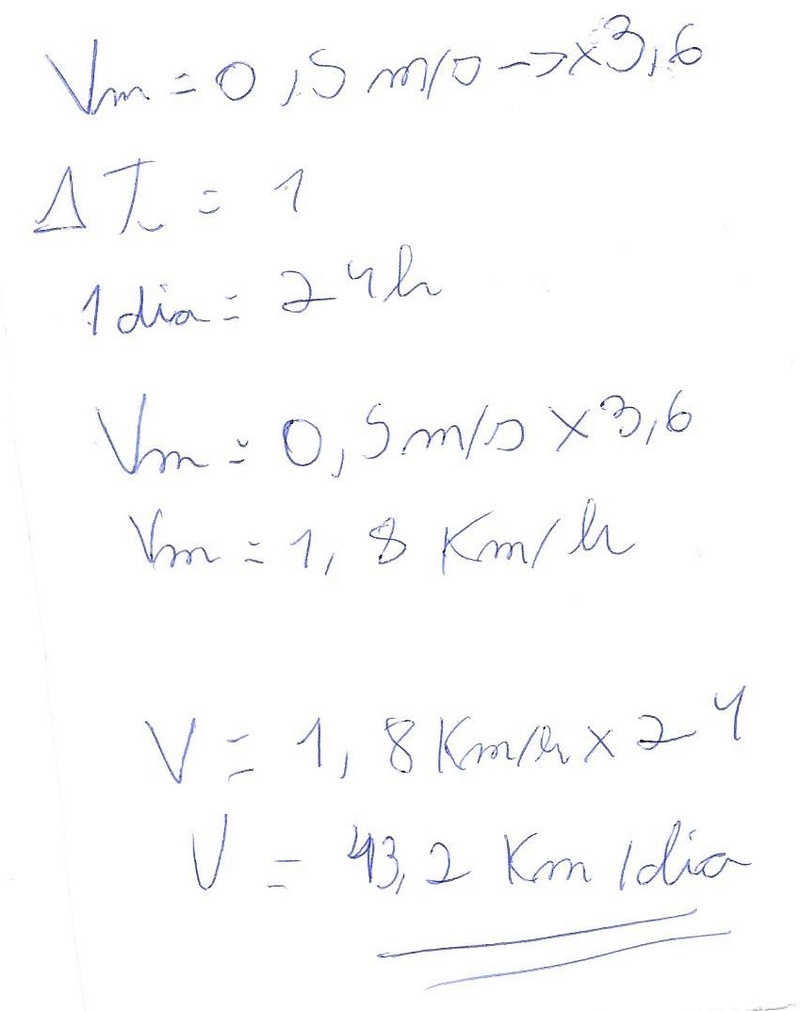 Vm = 0,5 m/s -> x3,6
ΔT = 1
1 dia = 24h
Vm = 0,5 m/s x 3,6
Vm = 1,8 Km/h
V = 1,8 Km/h x 24
V = 43,2 Km/dia